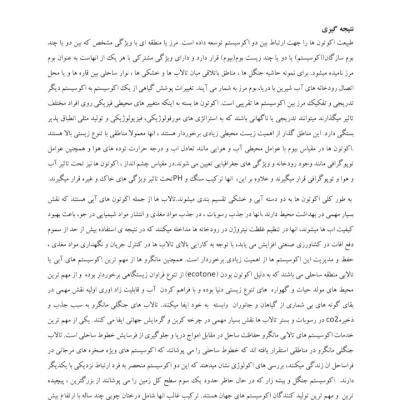 نتیجه گیری
طبیعت اکوتون ها را جهت ارتباط بین دو اکوسیستم توسعه داده است. مرز یا منطقه ای با ویژگی مشخص که بین دو یا چند
بوم سازگان(اکوسیستم) یا دو یا چند زیست بوم(بیوم) قرار دارد و دارای ویژگی مشترکی با هر یک از آنهاست به عنوان بوم
مرز نامیده میشود. برای نمونه حاشیه جنگل ها ، مناطق باتلاقی میان تالاب ها و خشکی ها ، نوار ساحلی بین قاره ها و یا محل
اتصال رودخانه های آب شیرین با دریا، بوم مرز به شمار می آیند. تغییرات پوشش گیاهی از یک اکوسیستم به اکوسیستم دیگر
تدریجی و تفکیک مرز بین اکوسیستم ها تقریبی است. اکوتون ها بسته به اینکه متغییر های محیطی فیزیکی روی افراد مختلف
تاثیر میگذارند میتوانند تدریجی یا ناگهانی باشند که به استراتژی های مورفولوژیکی، فیزیولوژیکی و تولید مثلی انطباق پذیر
بستگی دارد. این مناطق گذار از اهمیت زیست محیطی زیادی برخوردار هستند ، آنها معمولا مناطقی با تنوع زیستی بالا هستند
.اکوتون ها در مقیاس بیوم با عوامل محیطی آب و هوایی مانند تعادل آب و درجه حرارت توده های هوا و همچنین عوامل
توپوگرافی مانند وجود رودخانه و ویژگی های جغرافیایی تعیین می شوند.در مقیاس چشم انداز ، اکوتون ها نیز تحت تاثیر آب
و هوا و توپوگرافی قرار میگیرند و علاوه بر این، آنها ترکیب سنگ و PHتحت تاثیر ویژگی های خاک و غیره قرار میگیرند.
به طور کلی اکوتون ها به دو دسته آبی و خشکی تقسیم بندی میشوند.تالاب ها از جمله اکوتون های آبی هستند که نقش
بسیار مهمی در بهداشت محیط دارند .آنها در جذب رسوبات ، در جذب مواد مغذی و انتشار مواد شیمیایی در جو، باعث بهبود
کیفیت آب ها میشوند، آنها در تنظیم غلظت نیتروژن در رودخانه ها مداخله میکنند که در نتیجه ی استفاده بیش از حد از سموم
دفع آفات در کشاورزی صنعتی افزایش می یابد، با توجه به کارایی بالای تالاب ها در کنترل جریان و نگهداری مواد مغذی ،
حفظ و مدیریت این اکوسیستم ها از اهمیت زیادی برخوردار است. همچنین مانگرو ها از مهم ترین اکوسیستم های آبی یا
تالابی منطقه ساحلی می باشند که به دلیل اکوتون بودن (ecotone) از تنوع فراوان زیستگاهی برخوردار بوده و از مهم ترین
محیط های مولد حیات و گهواره های تنوع زیستی دنیا بوده و با فراهم کردن آب و قابلیت زاد آوری اولیه نقش مهمی در
بقای گونه های بی شماری از گیاهان و جانوران وابسته به خود ایفا میکنند. تالاب های جنگلی مانگرو به سبب جذب و
ذخیره co2 در رسوبات و بستر تالاب ها نقش بسیار مهمی در چرخه کربن و گرمایش جهانی ایفا می کنند. یکی از مهم ترین
خدمات اکوسیستم های تالابی مانگرو حفاظت ساحل در مقابل امواج دریا و جلوگیری از فرسایش خطوط ساحلی است. تالاب
جنگلی مانگرو در مناطقی استقرار یافته اند که خطوط ساحلی را می پوشانند که اکوسیستم های ویژه صخره های مرجانی در
فراساحل آن زندگی میکنند، بررسی های اکولوژی نشان میدهند که این دو اکوسیستم منحصر به فرد ارتباط نزدیکی با یکدیگر
دارند. اکوسیستم جنگل و بیشه زار که در حال حاظر حدود یک سوم سطح کل زمین را می پوشانند از بزرگترین ، پیچیده
ترین و مهم ترین تولید کنندگان اکوسیستم های جهان هستند. ترکیب غالب آنها شامل درختان چوبی چند ساله با ارتفاع بیش